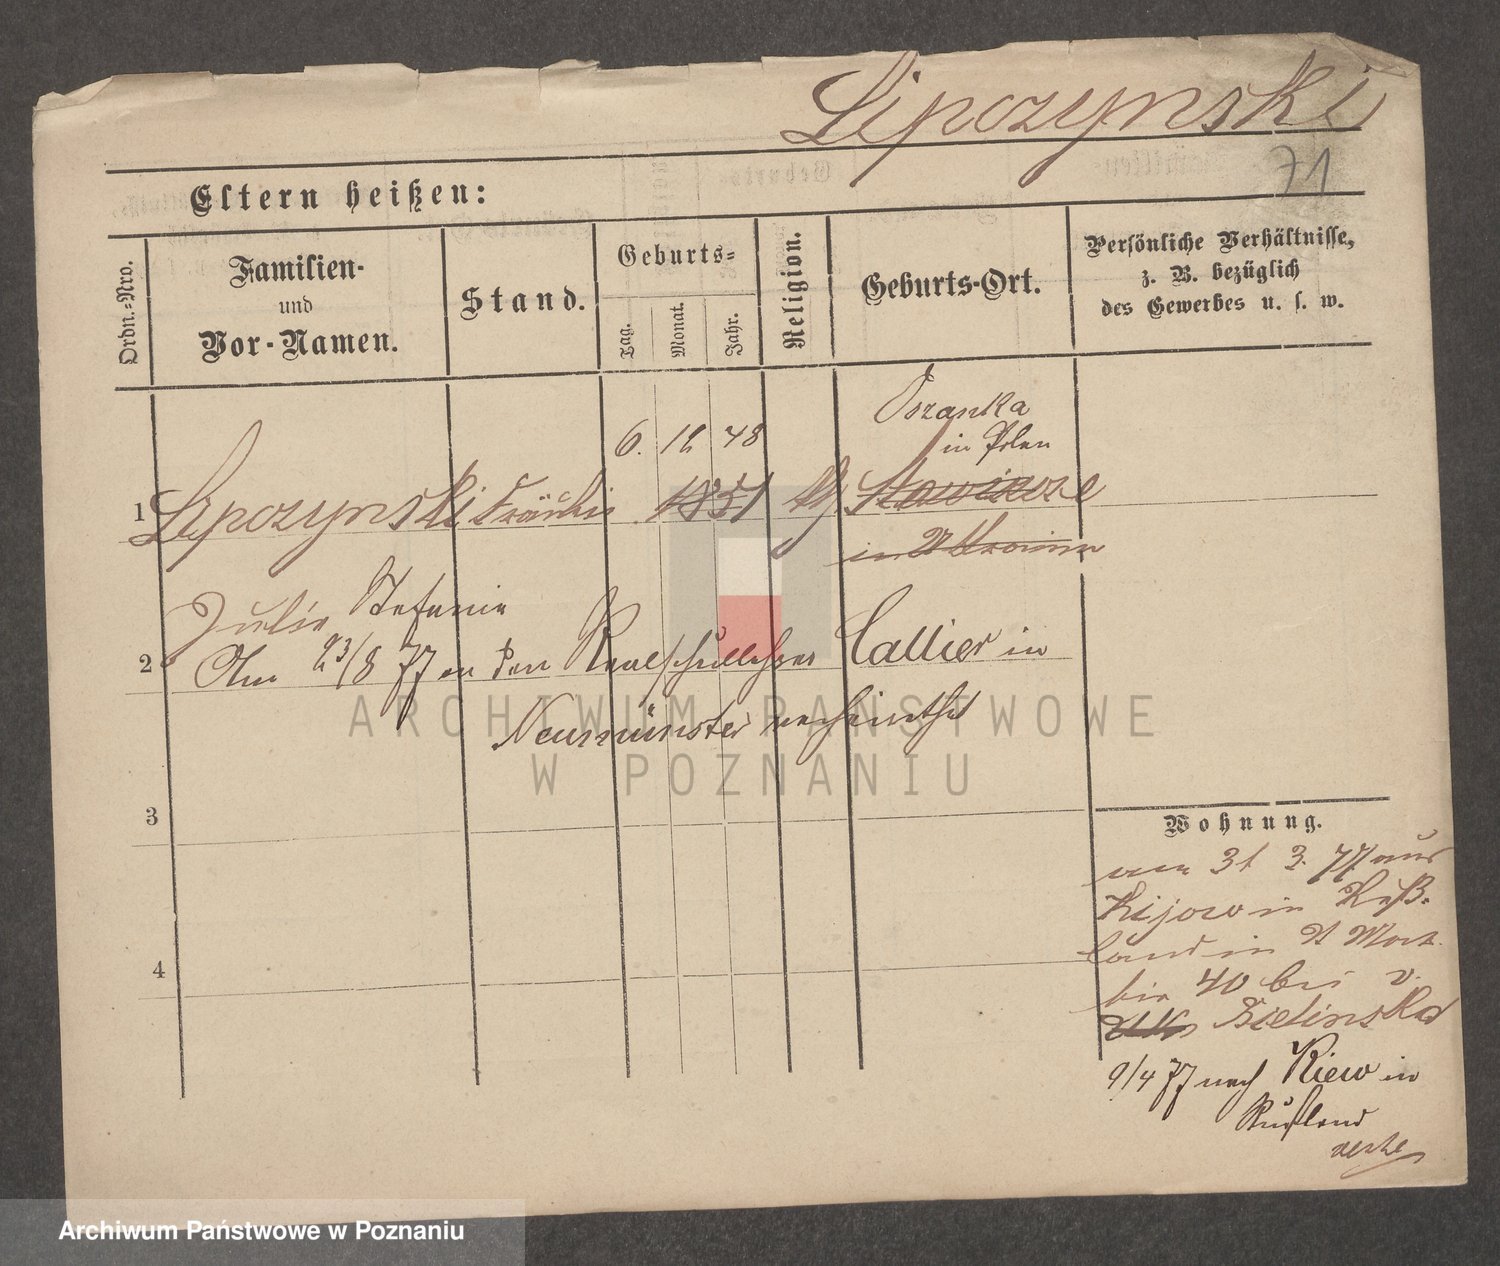 Lipczynski
71
Eltern heißen:
Ordn.-Nro.
Familien-
und
Vor-Namen.
Stand.
Geburts-
Tag.
Monat.
Jahr.
Religion.
Geburts-Ort.
Persönliche Verhältnisse,
z. B. bezüglich
des Gewerbes u. s. w.
Oszanka
in Polen
6. 12 48
1 Lipczynski Fräulein 1851
in Ukraine
Julie Stefanie
2 Am 23/8 77 an den Realschullehrer Callier in
Neumünster verheirathet
3
4
Wohnung.
vom 31 3. 77 aus
Kijow in Ruß-
land in A Mark
bis 40 bei v.
Bielinska
9/4 77 nach Kiew in
Rußland
ARCHIWUM PAŃSTWOWE
W POZNANIU
Archiwum Państwowe w Poznaniu